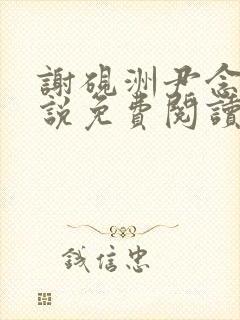 謝硯洲尹念
說免費閱讀
錢信忠